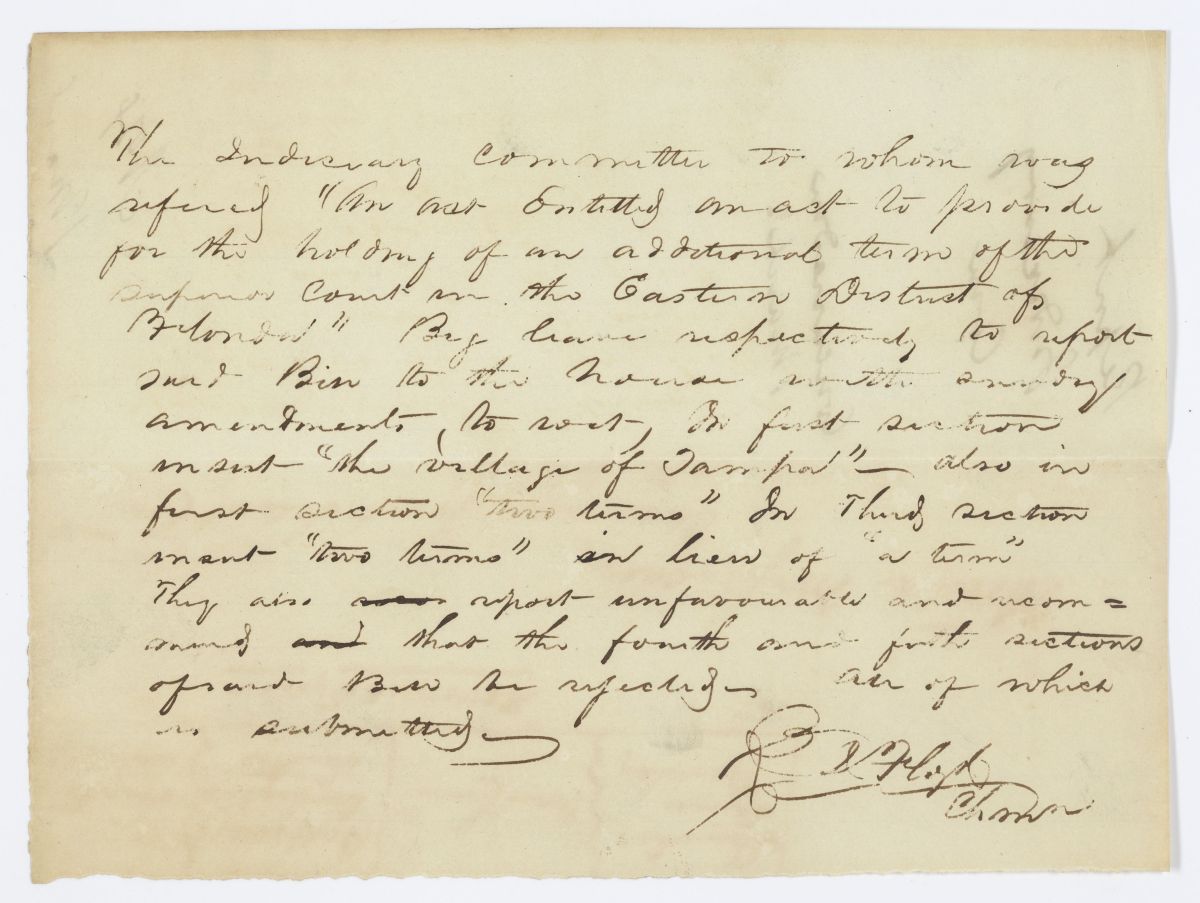 The Judiciary committee to whom was
refered "An act Entitled an act to provide
for the holding of an additional term of the
superior Court in the Eastern District of
Florida" Beg leave respectively to report
said Bill to the house with sundry
amendments, to wit, In first section
insert "the village of Tampa" — also in
first section "two terms" In Third section
insert "two terms" in lieu of "a term"
They also report unfavourable and recom=
mend and that the fourth and fifth sections
of said Bill be rejected — All of which
is submitted —
D Floyd
Chrmn